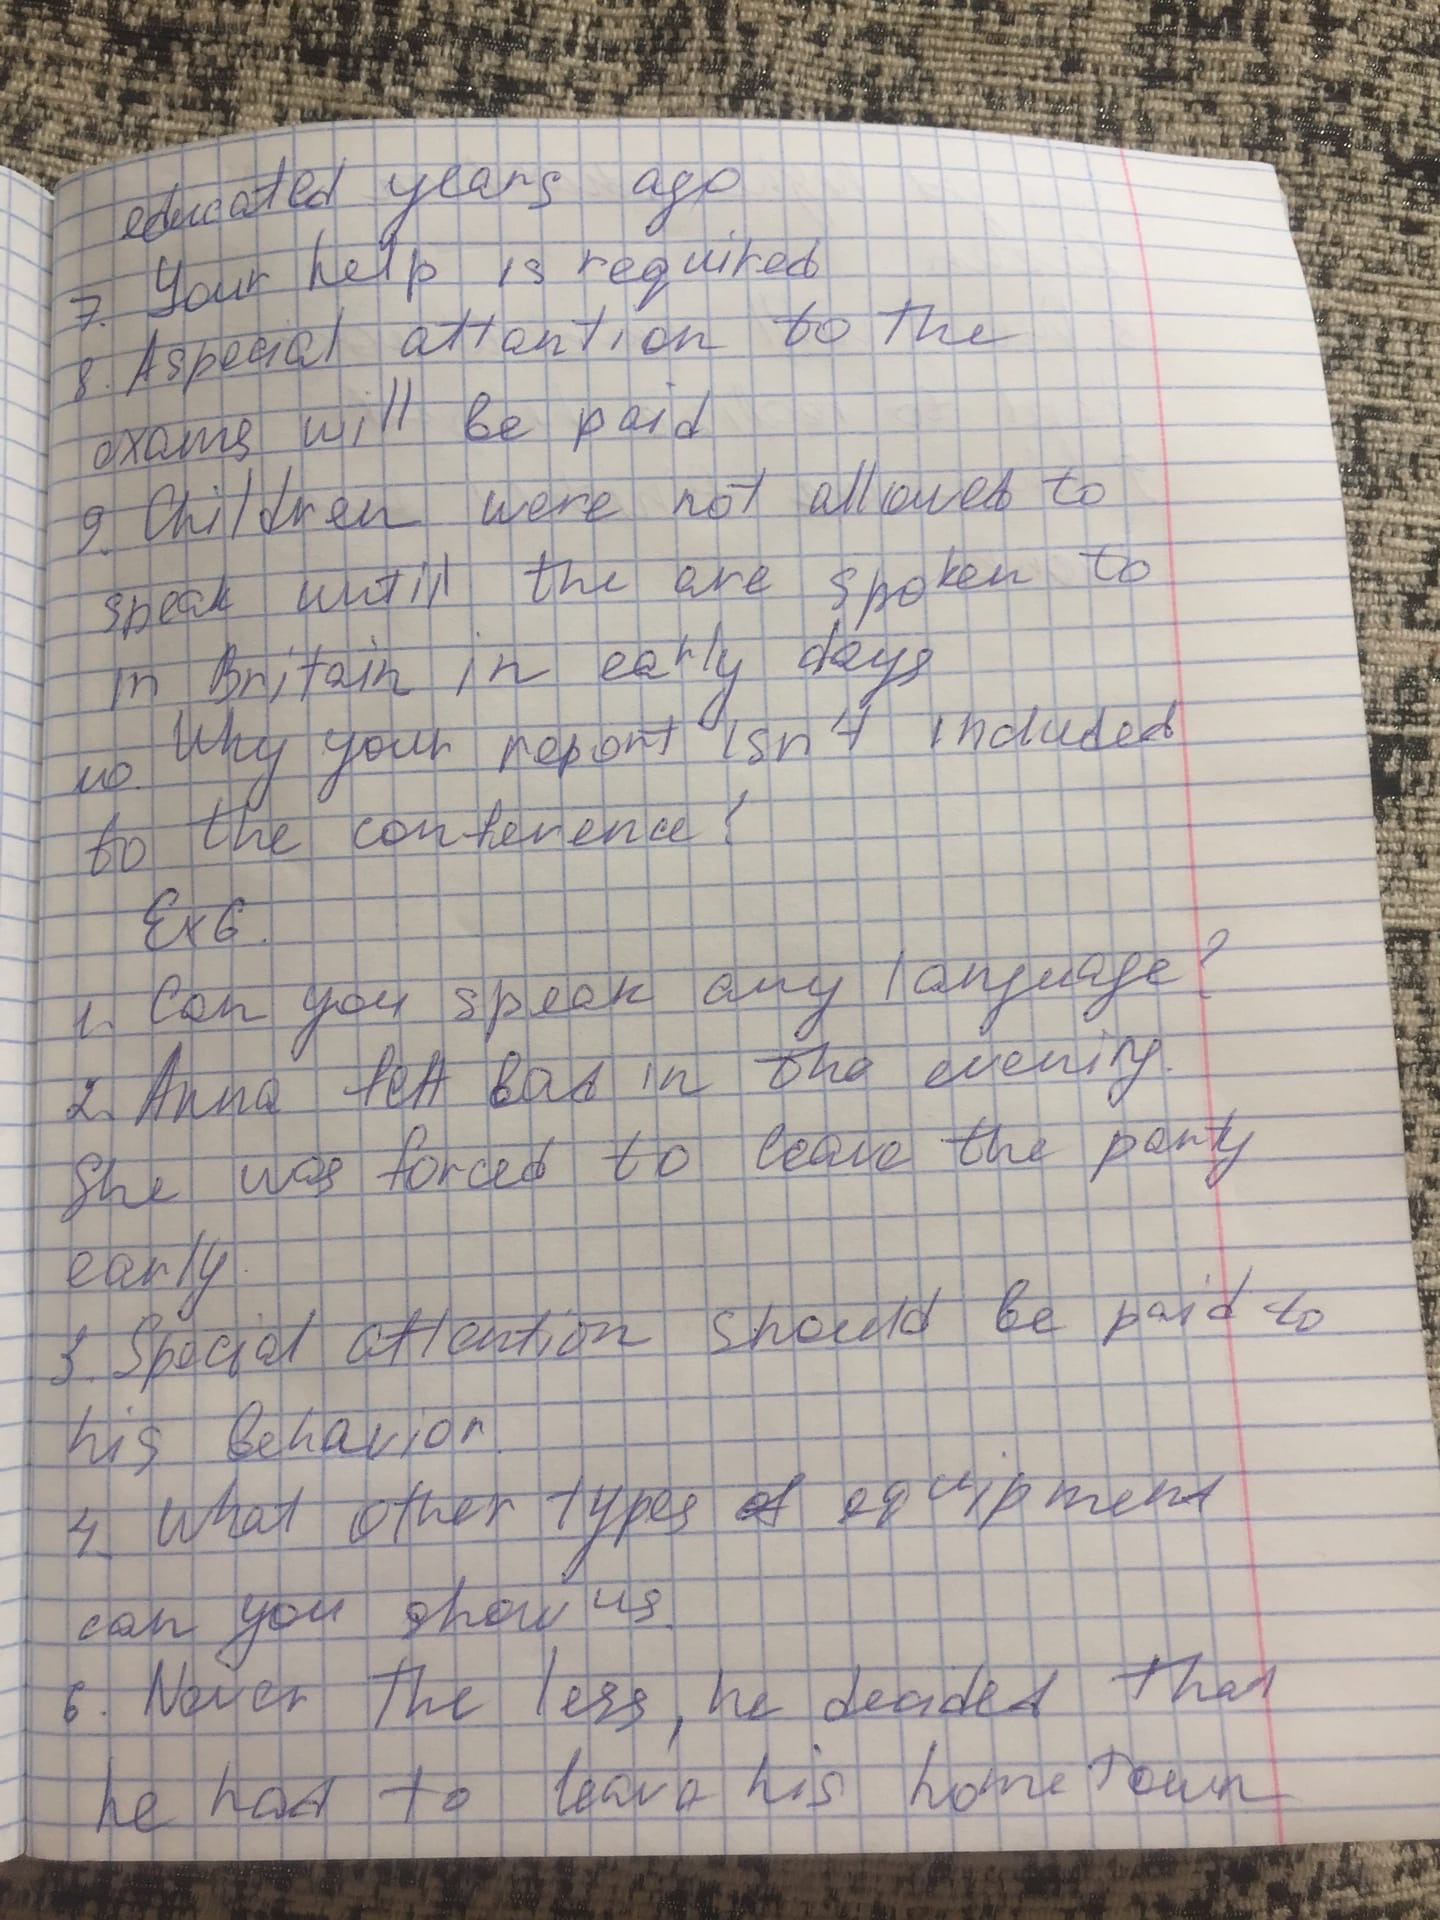 educated years ago
7. Your help is required
8. A special attantion to the
exams will be paid
9. Children were not allowed to
speak untill the are spoken to
in Britain in early days
10. Why your report isn't included
to the conference?
Ex 6.
1. Can you speak any language?
2. Anna felt bad in the evening.
She was forced to leave the party
early.
3. Special attention should be paid to
his behavior.
4. What other types of equipment
can you show us.
6. Never the less, he decided that
he had to leave his home town